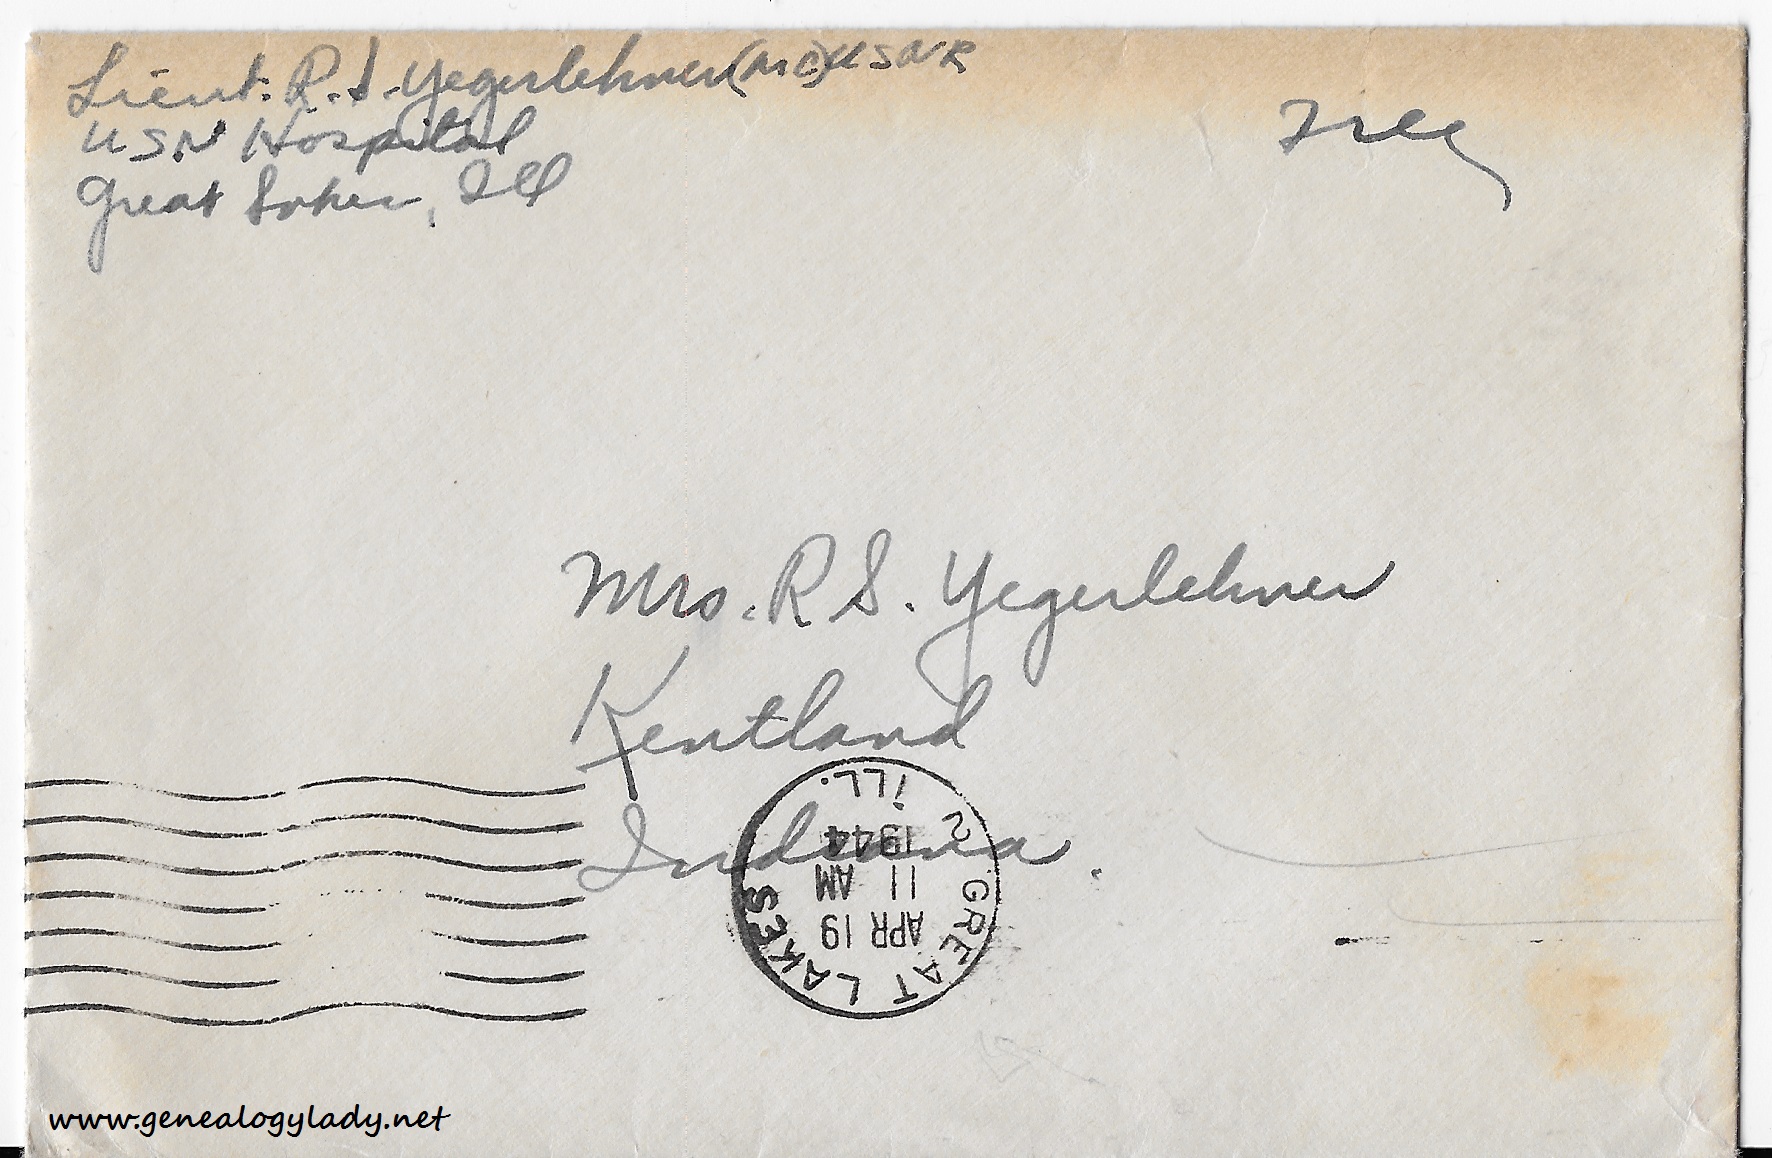 Lieut. R.S. Yegerlehner (MC) USNR
Free
USN Hospital
Great Lakes, Ill
Mrs. R S. Yegerlehner
Kentland
Indiana.
GREAT LAKES
2
ILL.
APR 19
11 AM
1944
www.genealogylady.net